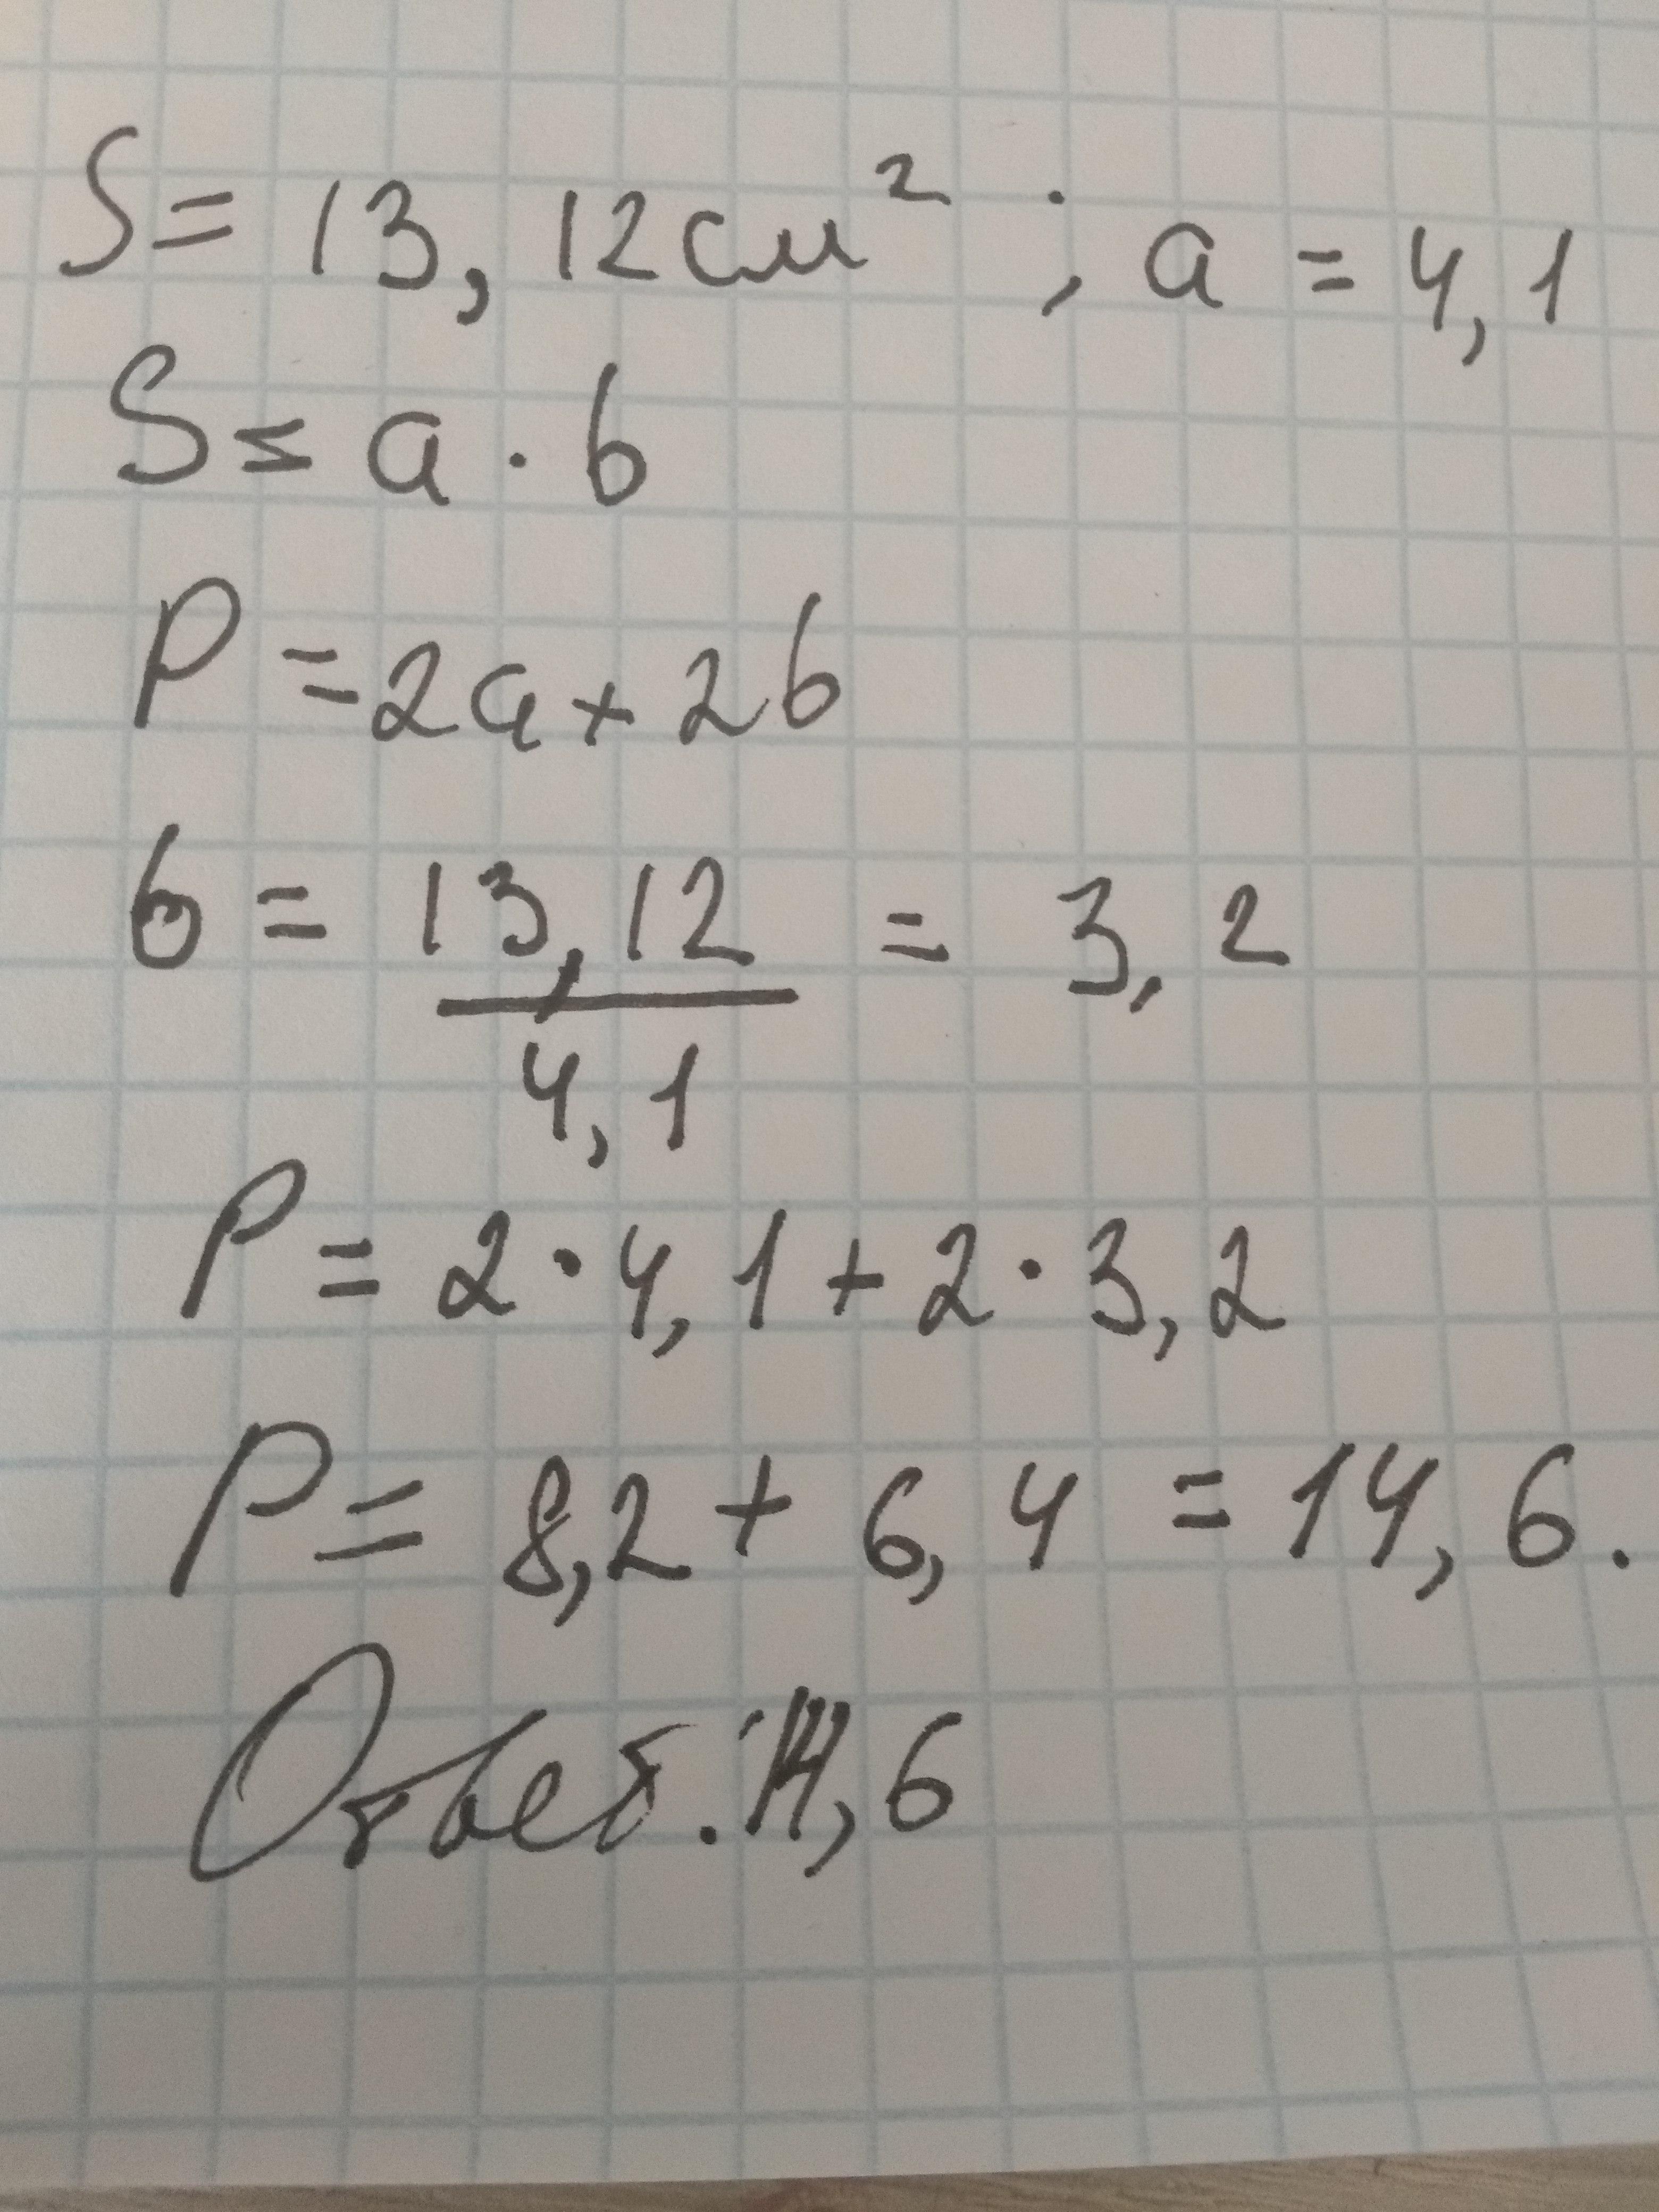 S = 13,12см² ; a = 4,1
S = a · b
P = 2a + 2b
b = 13,12 / 4,1 = 3,2
P = 2 · 4,1 + 2 · 3,2
P = 8,2 + 6,4 = 14,6.
Ответ: 14,6